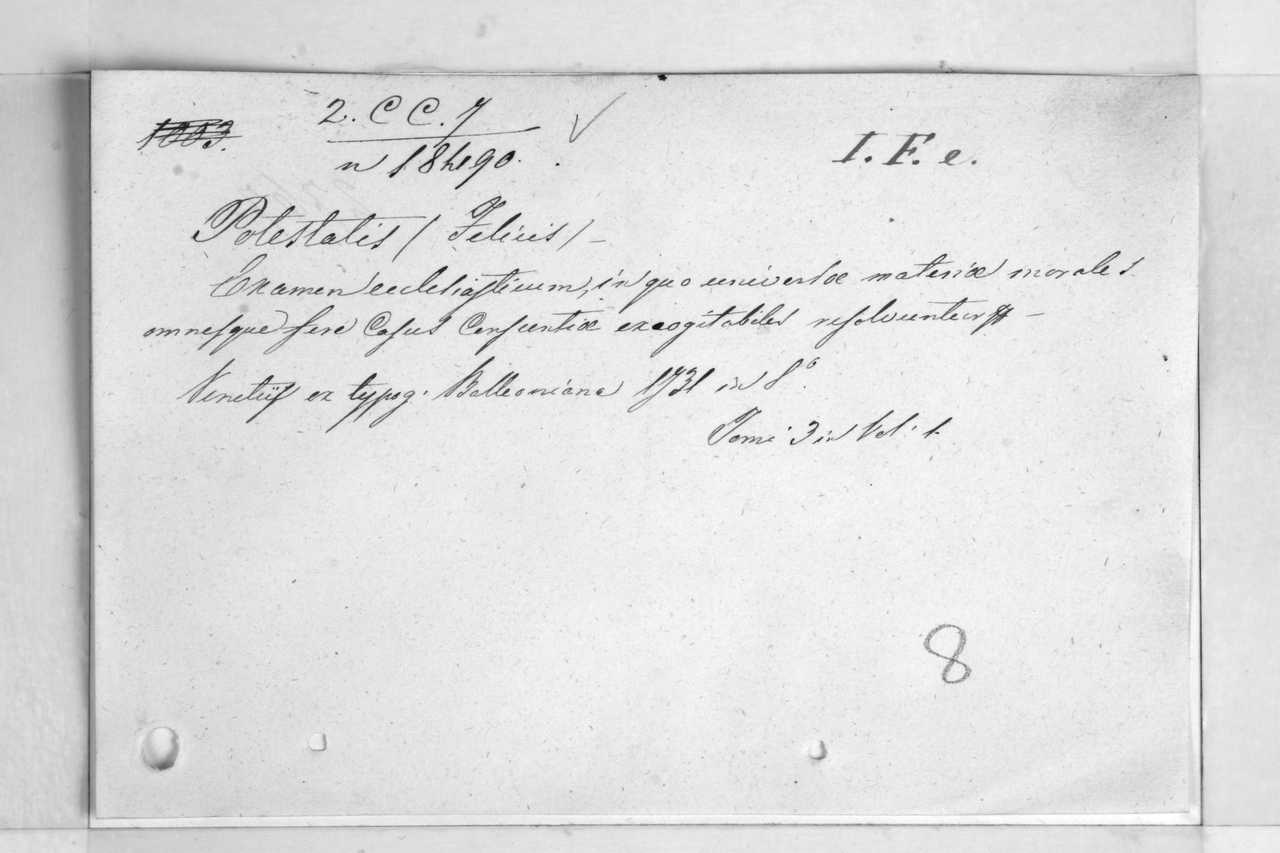 1003.
2. C C. 7
I. F. e.
Potestatis (Felicis) -
Examen ecclesiasticum, in quo universæ materiæ morales
omnesque fere Casus Consientiæ excogitabiles resolvuntur -
Venetiis ex typog. Balleoniana 1731 in 8.º
Tomi 3 in Vol: 1.
8